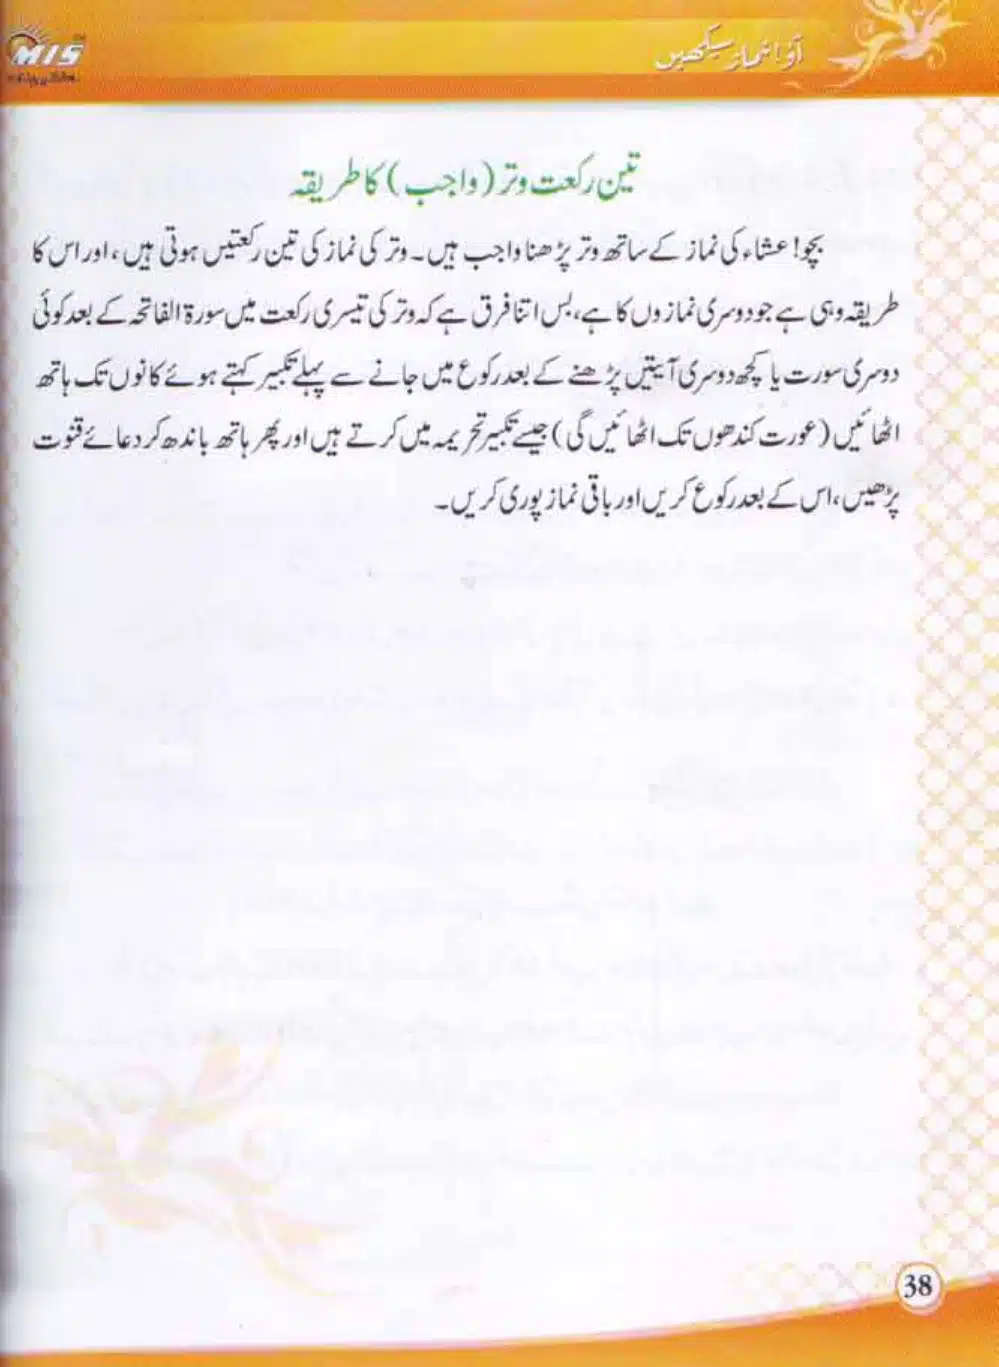 آؤ! نماز سیکھیں
MIS
تین رکعت وتر (واجب) کا طریقہ
بچو! عشاء کی نماز کے ساتھ وتر پڑھنا واجب ہیں۔ وتر کی نماز کی تین رکعتیں ہوتی ہیں، اور اس کا
طریقہ وہی ہے جو دوسری نمازوں کا ہے، بس اتنا فرق ہے کہ وتر کی تیسری رکعت میں سورۃ الفاتحہ کے بعد کوئی
دوسری سورت یا کچھ دوسری آیتیں پڑھنے کے بعد رکوع میں جانے سے پہلے تکبیر کہتے ہوئے کانوں تک ہاتھ
اٹھائیں (عورت کندھوں تک اٹھائیں گی) جیسے تکبیر تحریمہ میں کرتے ہیں اور پھر ہاتھ باندھ کر دعائے قنوت
پڑھیں، اس کے بعد رکوع کریں اور باقی نماز پوری کریں۔
38